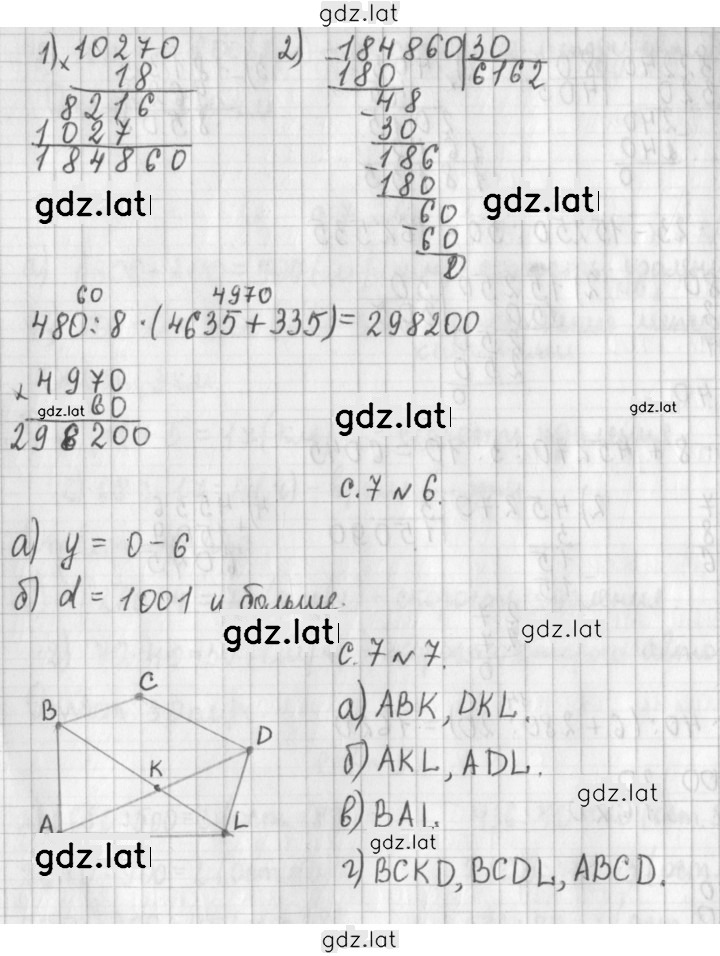 gdz.lat
1) 10270    2) 184860 | 30
× 18    - 180    6162
8216    - 48
1027    30
184860    - 186
gdz.lat    180    gdz.lat
- 60
60
0
60    4970
480 : 8 · (4635 + 335) = 298200
× 4970
gdz.lat 60    gdz.lat    gdz.lat
298200
с. 7 № 6.
а) y = 0 - 6
б) d = 1001 и больше.
gdz.lat    gdz.lat
с. 7 № 7.
а) ABK, DKL.
б) AKL, ADL.
gdz.lat
в) BAL.
gdz.lat
г) BCKD, BCDL, ABCD.
B C D K A L
gdz.lat
gdz.lat